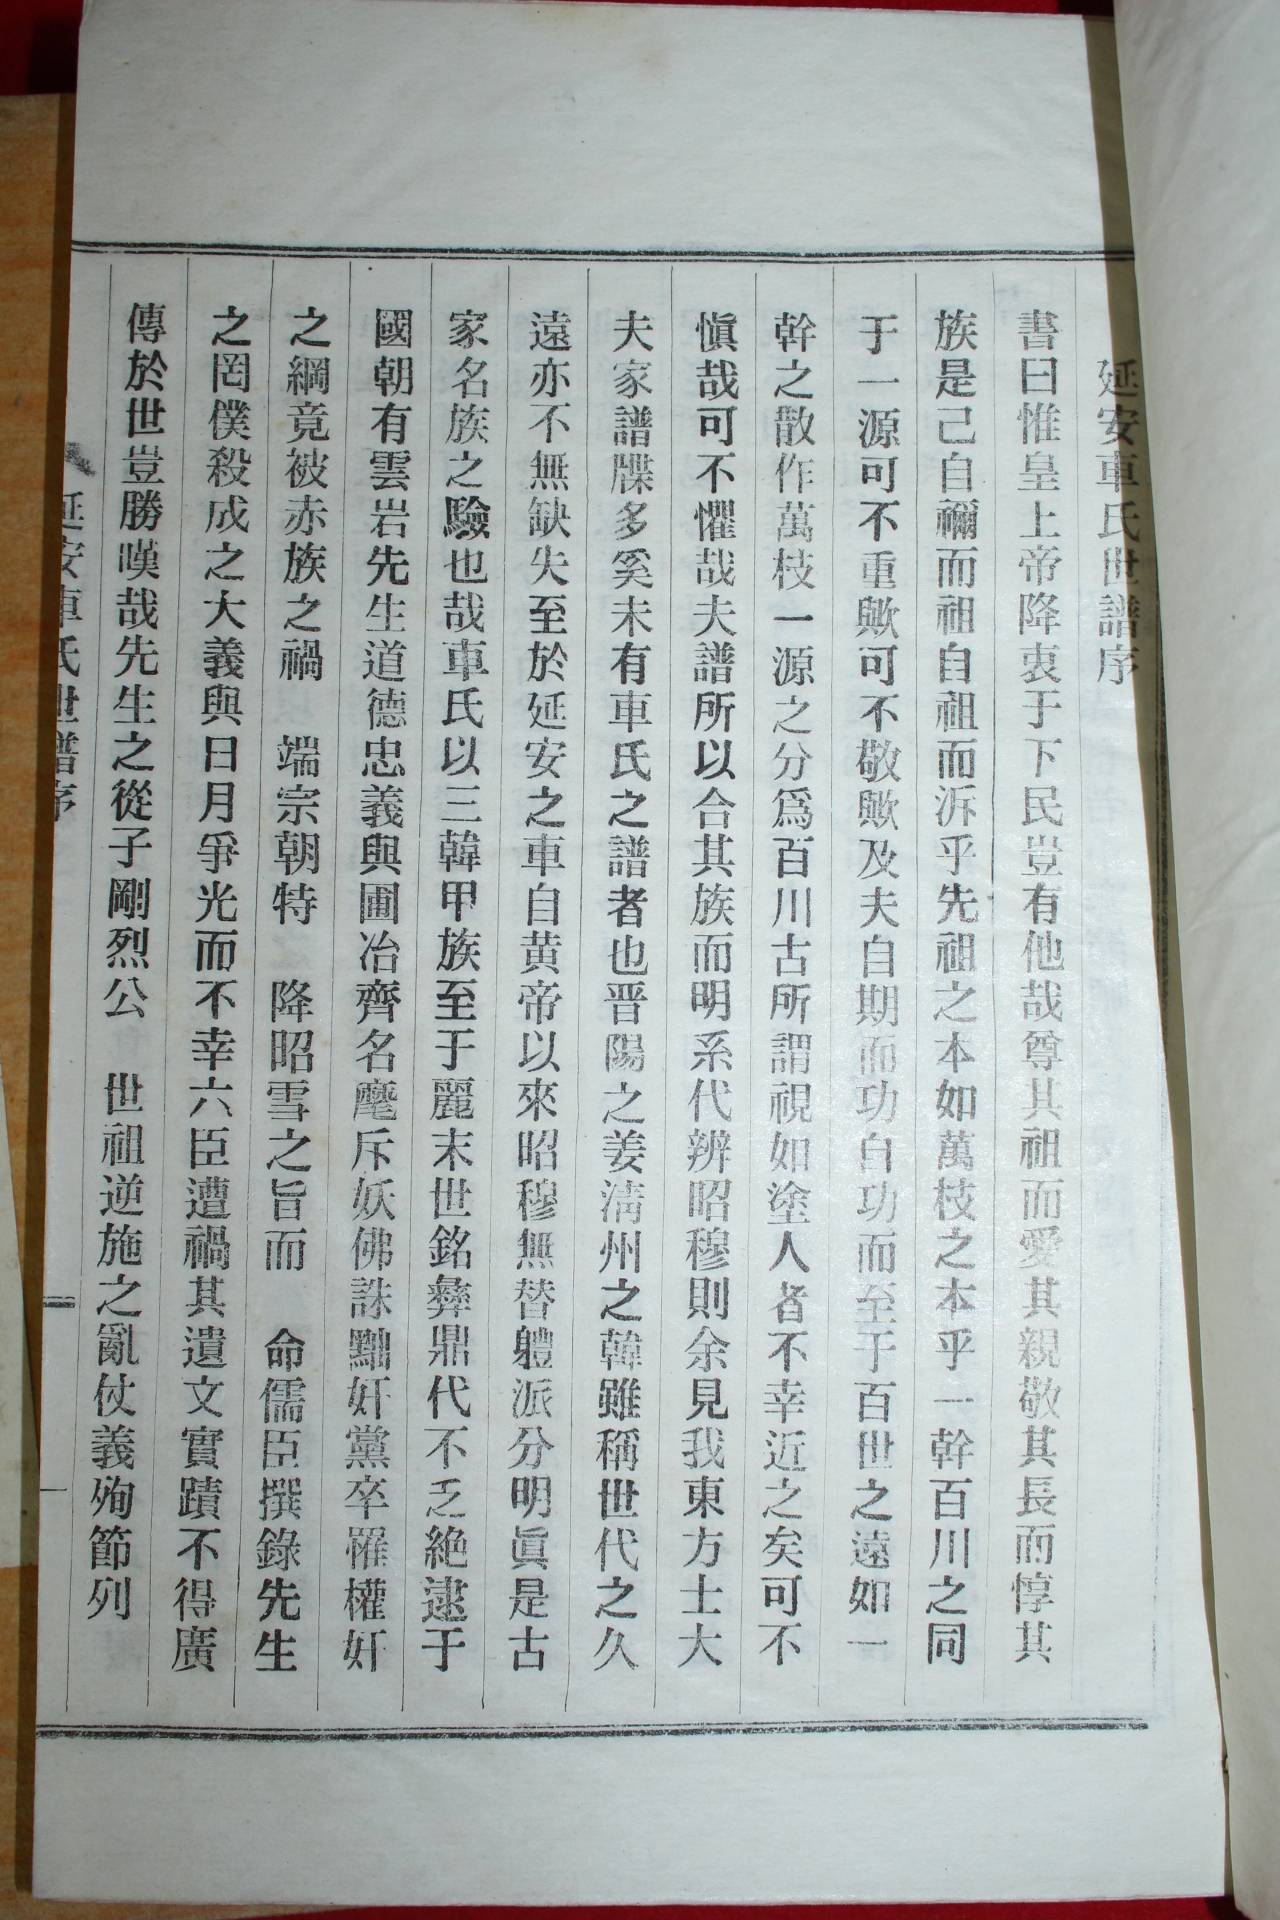 延安車氏世譜序
書曰惟皇上帝降衷于下民豈有他哉尊其祖而愛其親敬其長而惇其
族是己自禰而祖自祖而泝乎先祖之本如萬枝之本乎一幹百川之同
于一源可不重歟可不敬歟及夫自期而功自功而至于百世之遠如一
幹之散作萬枝一源之分爲百川古所謂視如塗人者不幸近之矣可不
愼哉可不懼哉夫譜所以合其族而明系代辨昭穆則余見我東方士大
夫家譜牒多奚未有車氏之譜者也晋陽之姜淸州之韓雖稱世代之久
遠亦不無缺失至於延安之車自黄帝以來昭穆無替軆派分明眞是古
家名族之驗也哉車氏以三韓甲族至于麗末世銘彜鼎代不乏絶逮于
國朝有雲岩先生道德忠義與圃冶齊名麾斥妖佛誅黜奸黨卒罹權奸
之綱竟被赤族之禍　端宗朝特　降昭雪之旨而　命儒臣撰錄先生
之罔僕殺成之大義與日月爭光而不幸六臣遭禍其遺文實蹟不得廣
傳於世豈勝嘆哉先生之從子剛烈公　世祖逆施之亂仗義殉節列
延安車氏世譜序